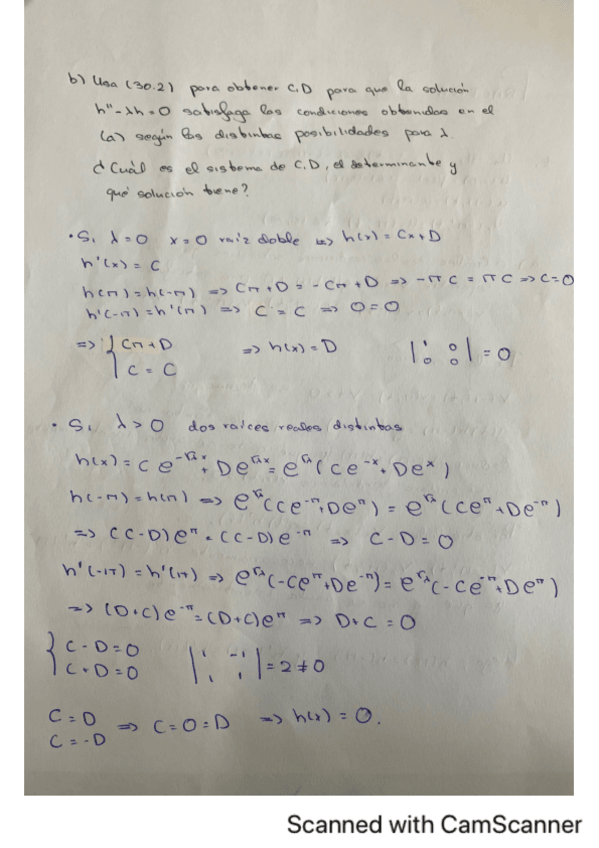 b) Usa (30.2) para obtener C,D para que la solución
h'' - λh = 0 satisfaga las condiciones obtenidas en el
(a) según las distintas posibilidades para λ.
¿Cuál es el sistema de C,D, el determinante y
qué solución tiene?
• Si λ=0 x=0 raíz doble => h(x) = Cx+D
h'(x) = C
h(π) = h(-π) => Cπ+D = -Cπ+D => -πC = πC => C=0
h'(-π) = h'(π) => C = C => 0=0
=> { Cπ+D => h(x) = D | 1 0 | = 0
C = C | 0 0 |
• Si λ>0 dos raíces reales distintas
h(x) = C e^{-√λx} + D e^{√λx} = e^{√λ} (C e^{-x} + D e^{x})
h(-π) = h(π) => e^{√λ} (C e^{-π} + D e^{π}) = e^{√λ} (C e^{π} + D e^{-π})
=> (C-D) e^{π} = (C-D) e^{-π} => C-D = 0
h'(-π) = h'(π) => e^{√λ} (-C e^{π} + D e^{-π}) = e^{√λ} (-C e^{-π} + D e^{π})
=> (D+C) e^{-π} = (D+C) e^{π} => D+C = 0
{ C-D=0 | 1 -1 | = 2 ≠ 0
C+D=0 | 1 1 |
C = D => C=0=D => h(x) = 0.
C = -D
Scanned with CamScanner